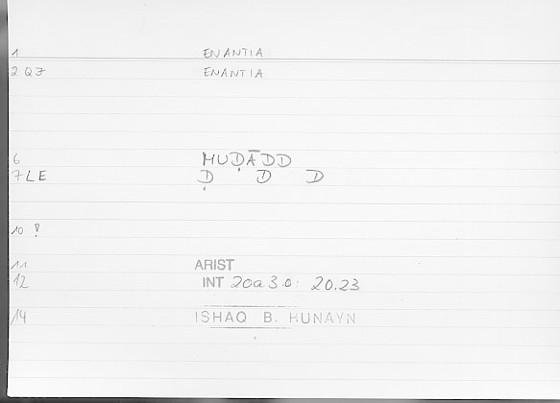 1 ENANTIA
2 QZ ENANTIA
6 MUḌĀDD
7 LE Ḍ D D
10 !
11 ARIST
12 INT 20a30: 20.23
14 ISḤAQ B. HUNAYN